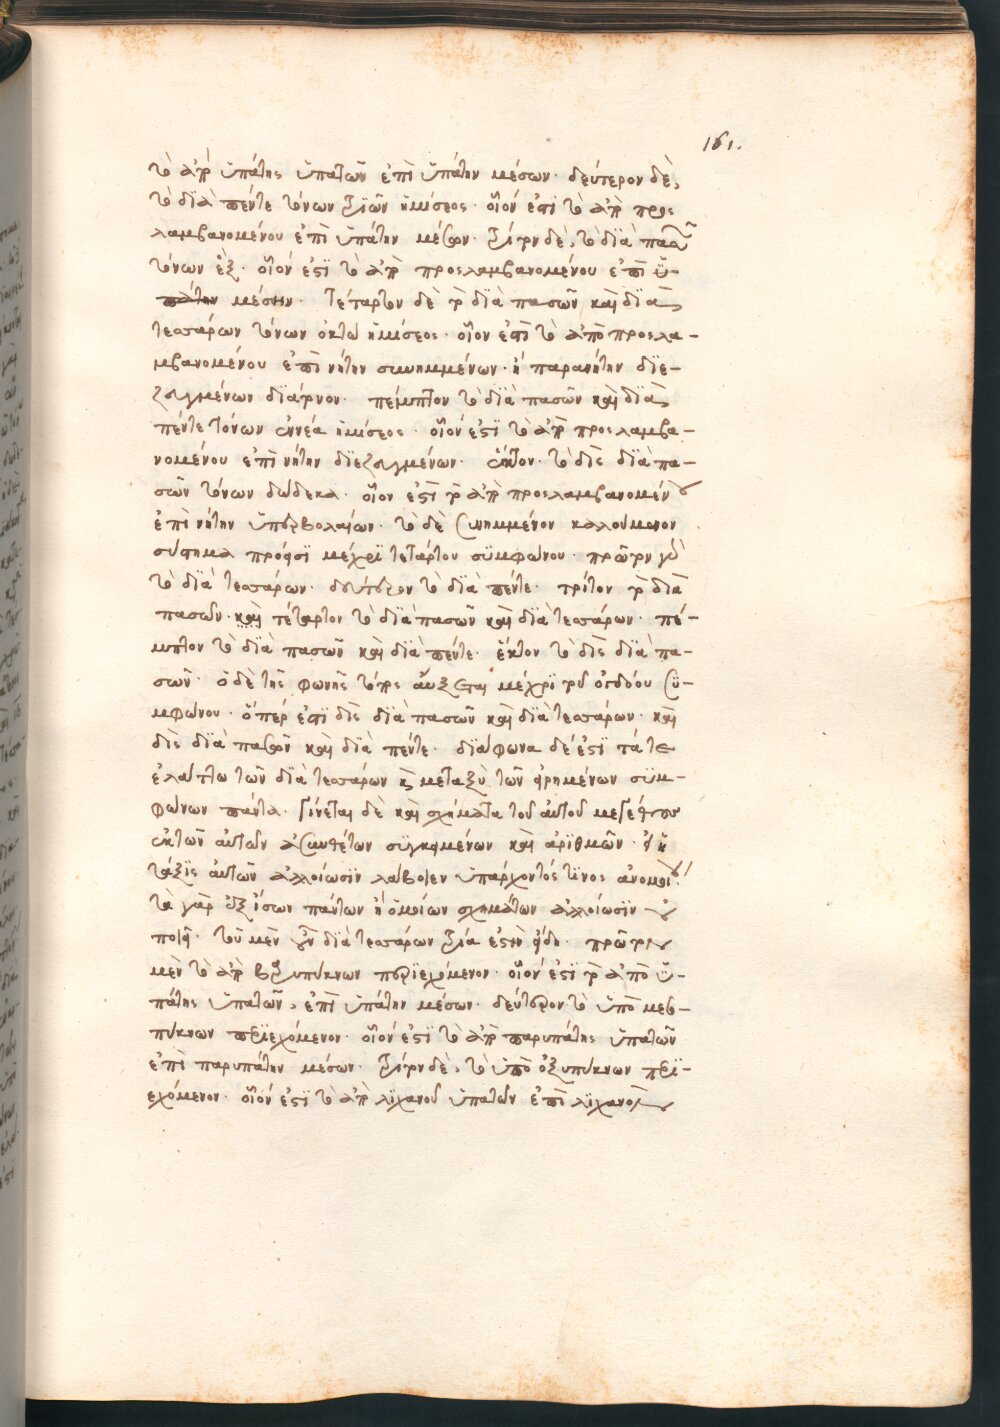 161.
τὸ ἀπὸ ὑπάτης ὑπατῶν ἐπὶ ὑπάτην μέσων· δεύτερον δὲ,
τὸ διὰ πέντε τόνων τριῶν ἡμίσεος· οἷόν ἐστι τὸ ἀπὸ προς
λαμβανομένου ἐπὶ ὑπάτην μέσων· τρίτον δὲ, τὸ διὰ πασῶν
τόνων ἓξ· οἷόν ἐστϊ τὸ ἀπὸ προςλαμβανομένου ἐπὶ ὑ-
πάτην μέσην· τέταρτον δὲ τὸ διὰ πασῶν καὶ διὰ
τεσσάρων τόνων ὀκτὼ ἡμίσεος· οἷον ἐστὶ τὸ ἀπὸ προςλα-
μβανομένου ἐπὶ νήτην συνημμένων· ἢ παρανήτην διε-
ζευγμένων διάτονον· πέμπτον τὸ διὰ πασῶν καὶ διὰ
πέντε τόνων ἐννέα ἡμίσεος· οἷόν ἐστϊ τὸ ἀπὸ προςλαμβα-
νομένου ἐπὶ νήτην διεζευγμένων· ἕκτον· τὸ δὶς διὰ πα-
σῶν τόνων δώδεκα· οἷον ἐστὶ τὸ ἀπὸ προςλαμβανομένου
ἐπὶ νήτην ὑπερβολαίων· τὸ δὲ συνημμένον καλούμενον
σύστημα πρόεισϊ μέχρϊ τετάρτου συμφώνου· πρῶτον γὰρ
τὸ διὰ τεσσάρων· δεύτερον τὸ διὰ πέντε· τρίτον τὸ διὰ
πασῶν· καὶ τέταρτον τὸ διὰ πασῶν καὶ διὰ τεσσάρων· πέ-
μπτον τὸ διὰ πασῶν καὶ διὰ πέντε· ἕκτον τὸ δὶς διὰ πα-
σῶν· ὁ δὲ τῆς φωνῆς τόπος αὔξεται μέχρϊ τοῦ ὀγδόου συ-
μφώνου· ὅπερ ἐστϊ δὶς διὰ πασῶν καὶ διὰ τεσσάρων· καὶ
δὶς διὰ πασῶν καὶ διὰ πέντε· διάφωνα δέ ἐστϊ τά τε
ἐλάττω τῶν διὰ τεσσάρων καὶ μεταξὺ τῶν εἰρημένων συμ-
φώνων πάντα· γίνεται δὲ καὶ σχήματα τοῦ αὐτοῦ μεγέθους
ἐκ τῶν αὐτῶν ἀσυνθέτων συγκειμένων καὶ ἀριθμῶν·
τάξις αὐτῶν ἀλλοίωσϊν λάβοιεν ὑπάρχοντός τϊνος ἀνομοίου·
τὰ γὰρ ἐξ ἴσων πάντων ἢ ὁμοίων σχημάτων ἀλλοίωσϊν οὐ
ποιεῖ· τοῦ μὲν οὖν διὰ τεσσάρων τρία ἐστὶν εἴδη· πρῶτον
μὲν τὸ ἀπὸ βαρυπύκνων περιεχόμενον· οἷόν ἐστϊ τὸ ἀπὸ ὑ-
πάτης ὑπατῶν, ἐπὶ ὑπάτην μέσων· δεύτερον τὸ ὑπὸ μεσο-
πύκνων περιεχόμενον· οἷόν ἐστϊ τὸ ἀπὸ παρυπάτης ὑπατῶν
ἐπὶ παρυπάτην μέσων· τρίτον δὲ, τὸ ὑπὸ ὀξυπύκνων περι-
εχόμενον· οἷόν ἐστϊ τὸ ἀπὸ λιχανοῦ ὑπατῶν ἐπὶ λιχανὸν